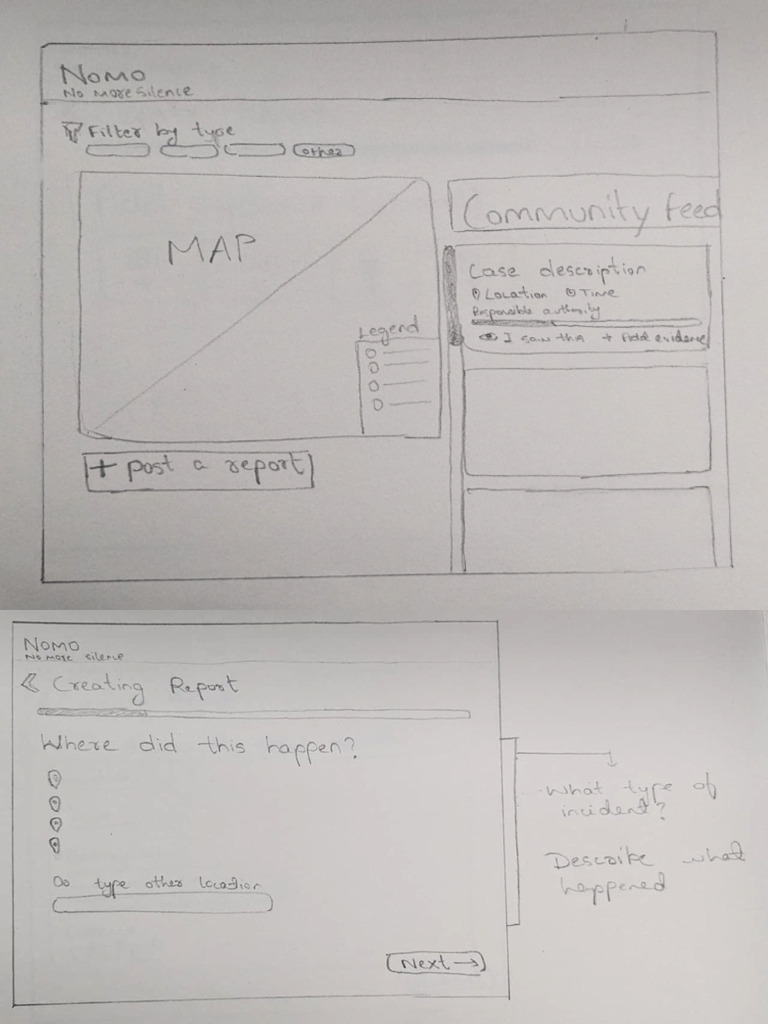 NOMO
NO MORE SILENCE
Filter by type
other
MAP
Legend
Community feed
Case description
Location Time
Responsible authority
I saw this + Add evidence
+ post a report
NOMO
NO MORE SILENCE
< Creating Report
Where did this happen?
Or type other location
Next →
What type of
incident?
Describe what
happened